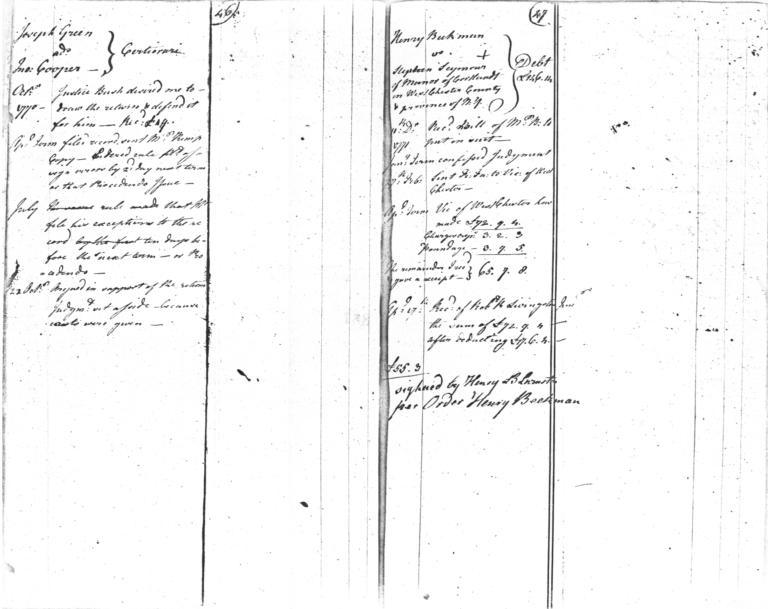 46.
Joseph Green
ads
Jno: Cooper —
} Certiorari
Oct.r
1770 —
Justice Bush desired me to
draw the return & defend it
for him — Rec.d £4.
Ap.l Term filed record, sent Mr. Kemp
Copy — Entered rule Pl.ff as-
sign errors by 2.d day next term
or that Procedendo Issue —
July
rule made that Pl.ff
file his exceptions to the re
cord ten days be-
fore the next term — or Pro
cedendo —
22 Oct.r Argued in support of the return
Judgm.t set aside — because
costs were given —
47
Henry Beekman
vs.
Stephen Seymour
of Manor of Cortlandt
in WestChester County
& province of N.Y.
} Debt
£146.14
1771
Rec.d Bill of Mr. R. to
put in suit —
Jan.y Term confessed Judgment
Feb: Sent Fi: Fa: to Vic: of West
Chester —
Ap.l Term Vic of WestChester has
made £72. 9. 4.
3. 2. 3
Poundage — 3. 9. 5.
The remainder I rec.d
gave a receipt — } 65. 7. 8.
Rec.d of Rob.t R Livingston Jun.r
the sum of £72. 9. 4 —
after deducting £17. 6. 4. —
£55. 3
signed by Henry B
per Order Henry Beekman